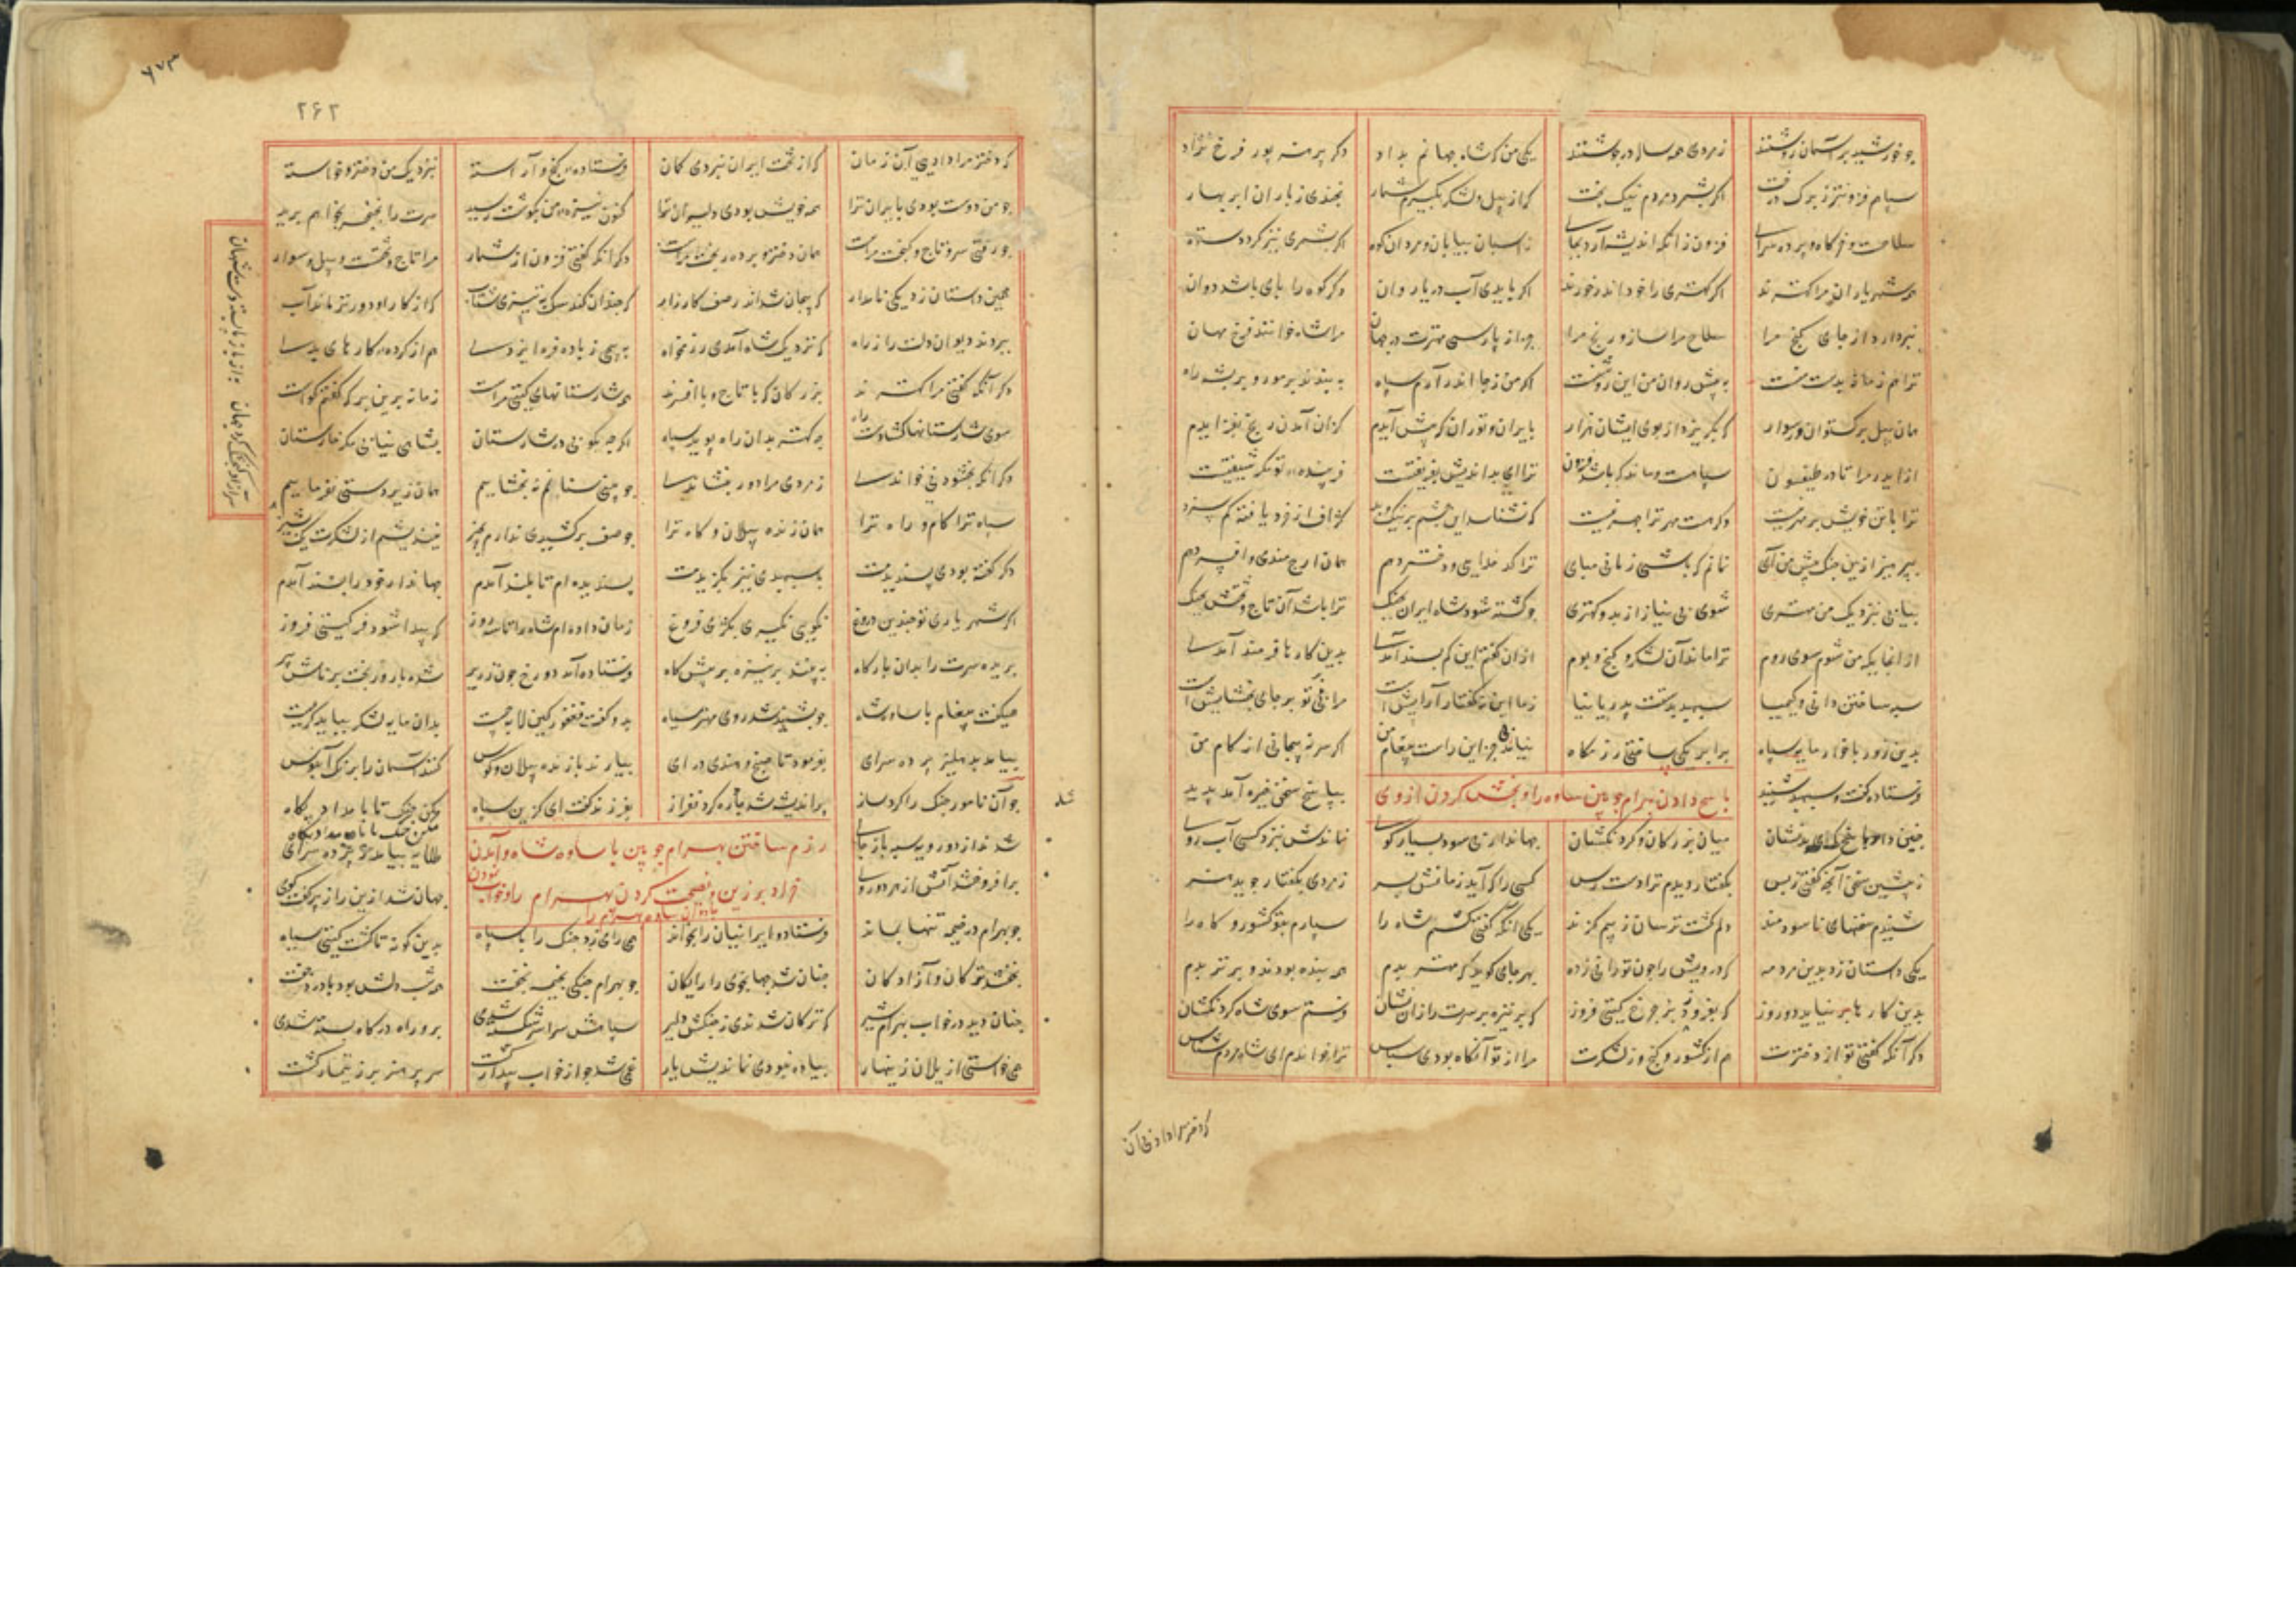 چو خورشید بر آسمان روشنند زمردی همه ساله در جوشنند یکی من که شاه جهانم بداد دکر پرمنه پور فرخ نژاد
سپاهم فزونتر ز برک درخت اکر بشمرد مردم نیک بخت کر از پیل و لشکر بکیرم شمار بخندی ز باران ابر بهار
سلاحست و خرکاه و پرده سرای فزون زانکه اندیشه آرد بجای ز اسبان بیابان و مردان کوه اکر بشمری نیز کردد ستوه
همه شهریاران مرا کهترند اکر کهتری را خود اندر خورند اکر یابدی آب دریا روان وکر کوه را پای باشد دوان
نبردارد از جای کنج مرا سلاح مرا ساز و رنج مرا جز از پارسی مهترت در جهان مرا شاه خوانند فرخ مهان
ترا هم زمانه بدست منست به پیش روان من این روشنست اکر من ز جا اندر آرم سپاه ببندند بر مور و بر پشه راه
همان پیل برکستوان ور سوار که بکریزد از بوی ایشان هزار بایران و توران که پیش آیدم کزان آمدن رنج بفزایدم
از ایدر مرا تا در طیسفون سپاهست و ماند که باشد فزون ترا ای بداندیش بفریفتست فریبنده تو مکر شیفتست
ترا با تن خویش بر مهر نیست وکر هست مهر ترا بهر نیست که نشناسد این چشم بر نیک و بد کزاف از خرد یافته کم سزد
بپرهیز ازین جنک و پیش من آی نمانم که باشی زمانی بپای ترا کدخدایی و دختر دهم همان ارجمندی و افسر دهم
بیابی بنزدیک من مهتری شوی بی نیاز از بد و کهتری چو کشته شود شاه ایران بجنک ترا باشد آن تاج و تختش بچنک
از آنجا یکه من شوم سوی روم ترا ماند آن لشکر و کنج و بوم ازان کفتم این کم پسند آمدی بدین کارها فرمند آمدی
سپه ساختن دانی و کیمیا سپهبد بدستت پدر یا نیا ز ما این نه کفتار آرایش است مرا نیز بر تو بر جای بخشایش است
بدین روز با خوار مایه سپاه برابر یکی ساختی رزمکاه نیابی جز این راست پیغام من اکر سر نه پیچانی از کام من
فرستاده کفت و سپهبد شنید
پاسخ دادن بهرام چوبین ساوه را و بخش کردن از وی
بپاسخ سخن تیره آمد پدید
چنین داد پاسخ که ای بدنشان میان بزرکان و کردنکشان جهاندار بی سود بسیار کوی نماندش نزد کسی آب روی
ز پیشین سخن آنچه کفتی ز پس بکفتار دیدم ترا دسترس کسی را که آید زمانش بسر ز مردی بکفتار جوید هنر
شنیدم سخنهای ناسودمند دلم کشت ترسان ز بیم کزند یکی آنکه کفتی کشم شاه را سپارم بتو کشور و کاه را
یکی داستان زد بدین مرد مه که درویش را چون تو رانی ز ده بهر جای کوید که مهتر بدم همه بنده بودند و برتر بدم
بدین کارها بر نیاید دو روز که بفروزد از چرخ کیتی فروز که بر نیزه بر سرت را زان نشان فرستم سوی شاه کردنکشان
دکر آنکه کفتی تو از دخترت هم از کشور و کنج وز لشکرت مرا از تو آنکاه بودی سپاس ترا خواندم ای شاه مردم شناس
که دختر مرا دادیی آن
۲۶۲
۶۷۳
که دختر مرا دادیی آن زمان که از تخت ایران نبردی کمان فرستاده کنج و آراسته بنزدیک من دختر و خواسته
چو من دوست بودی بایران ترا همه خویش بودی دلیران ترا کنون نیزه من بکوشت رسید سرت را بخنجر بخواهم برید
چو رفتی سر و تاج و کنجت مراست همان دختر و برده رنجت مراست دکر آنکه کفتی فزون از شمار مرا تاج و تختست و پیل و سوار
چنین داستان زد یکی نامدار که پیچان شد اندر صف کارزار که چندان کند سک به تیزی شتاب که از کار او دورتر ماند آب
ببردند دیوان دلت را ز راه که نزدیک شاه آمدی رزمخواه به پیچی ز باد افره ایزدی هم از کرده کارهای بدی
دکر آنکه کفتی مرا کهترند بزرکان که با تاج و با افسرند همه شارستانهای کیتی مراست زمانه برین بر که کفتم کواست
سوی شارستانها کشادست راه چه کهتر بدان راه پوید سپاه اکر چه بکوبی در شارستان بشاهی نیابی مکر خارستان
دکر آنکه بخشودنی خواندی ز مردی مرا دور بنشاندی چو بینی سنانم نه بخشاییم همان زیردستی نفرماییم
سپاه ترا کام و راه ترا همان زنده پیلان و کاه ترا چو صف برکشیدی ندارم بچیز نیندیشم از لشکرت یک پشیز
دکر کفته بودی پسندیدمت به سپهبدی نیز بکزیدمت پسندیده ام تا بلند آمدم جهاندار خود را پسند آمدم
اکر شهریاری تو چندین دروغ بکویی نکیری بکژی فروغ زمان داده ام شاه را تا سه روز که پیدا شود فر کیتی فروز
بریده سرت را بدان بارکاه به بینند بر نیزه بر پیش کاه فرستاده آمد دو رخ چون زریر شده بارور بخت برناش پیر
همیکفت پیغام با ساوه شاه چو بشنید شد روی مهتر سیاه بدو کفت فغفور کین لابه چیست بدان مایه لشکر بباید کریست
بیامد بدهلیز پرده سرای بفرمود تا صنج و هندی درای بیارند با زنده پیلان و کوس کنند آسمان را برنک آبنوس
چو آن نامور جنک را کرد ساز پر اندیشه شد چاره کرد نفراز بفرزند کفت ای کزین سپاه مکن جنک تا بامداد پکاه
رزم ساختن بهرام چوبین با ساوه شاه و آمدن خراد برزین و نصیحت کردن بهرام را و خواب نمودن جادوان ساوه بهرام را
شدند از دو رویه سپه باز جای طلایه بیامد ز پرده سرای
برافروختند آتش از هر دو روی جهان شد ازین راز پر کفت و کوی
چو بهرام در خیمه تنها بماند فرستاد و ایرانیان را بخواند همی رای زد جنک را با سپاه بدین کونه تا کشت کیتی سیاه
بخفتند ترکان و آزادکان جهان شد جهانجوی را رایکان چو بهرام جنکی بخیمه بخفت همه شب دلش بود با درد جفت
چنان دید در خواب بهرام شیر که ترکان شدندی ز جنکش دلیر سپاهش سراسر شکسته شدی برو راه درکاه بسته شدی
همی خواستی از یلان زینهار پیاده نبودی نماندیش یار غمی شد چو از خواب بیدار کشت سر پر هنر پر ز تیمار کشت